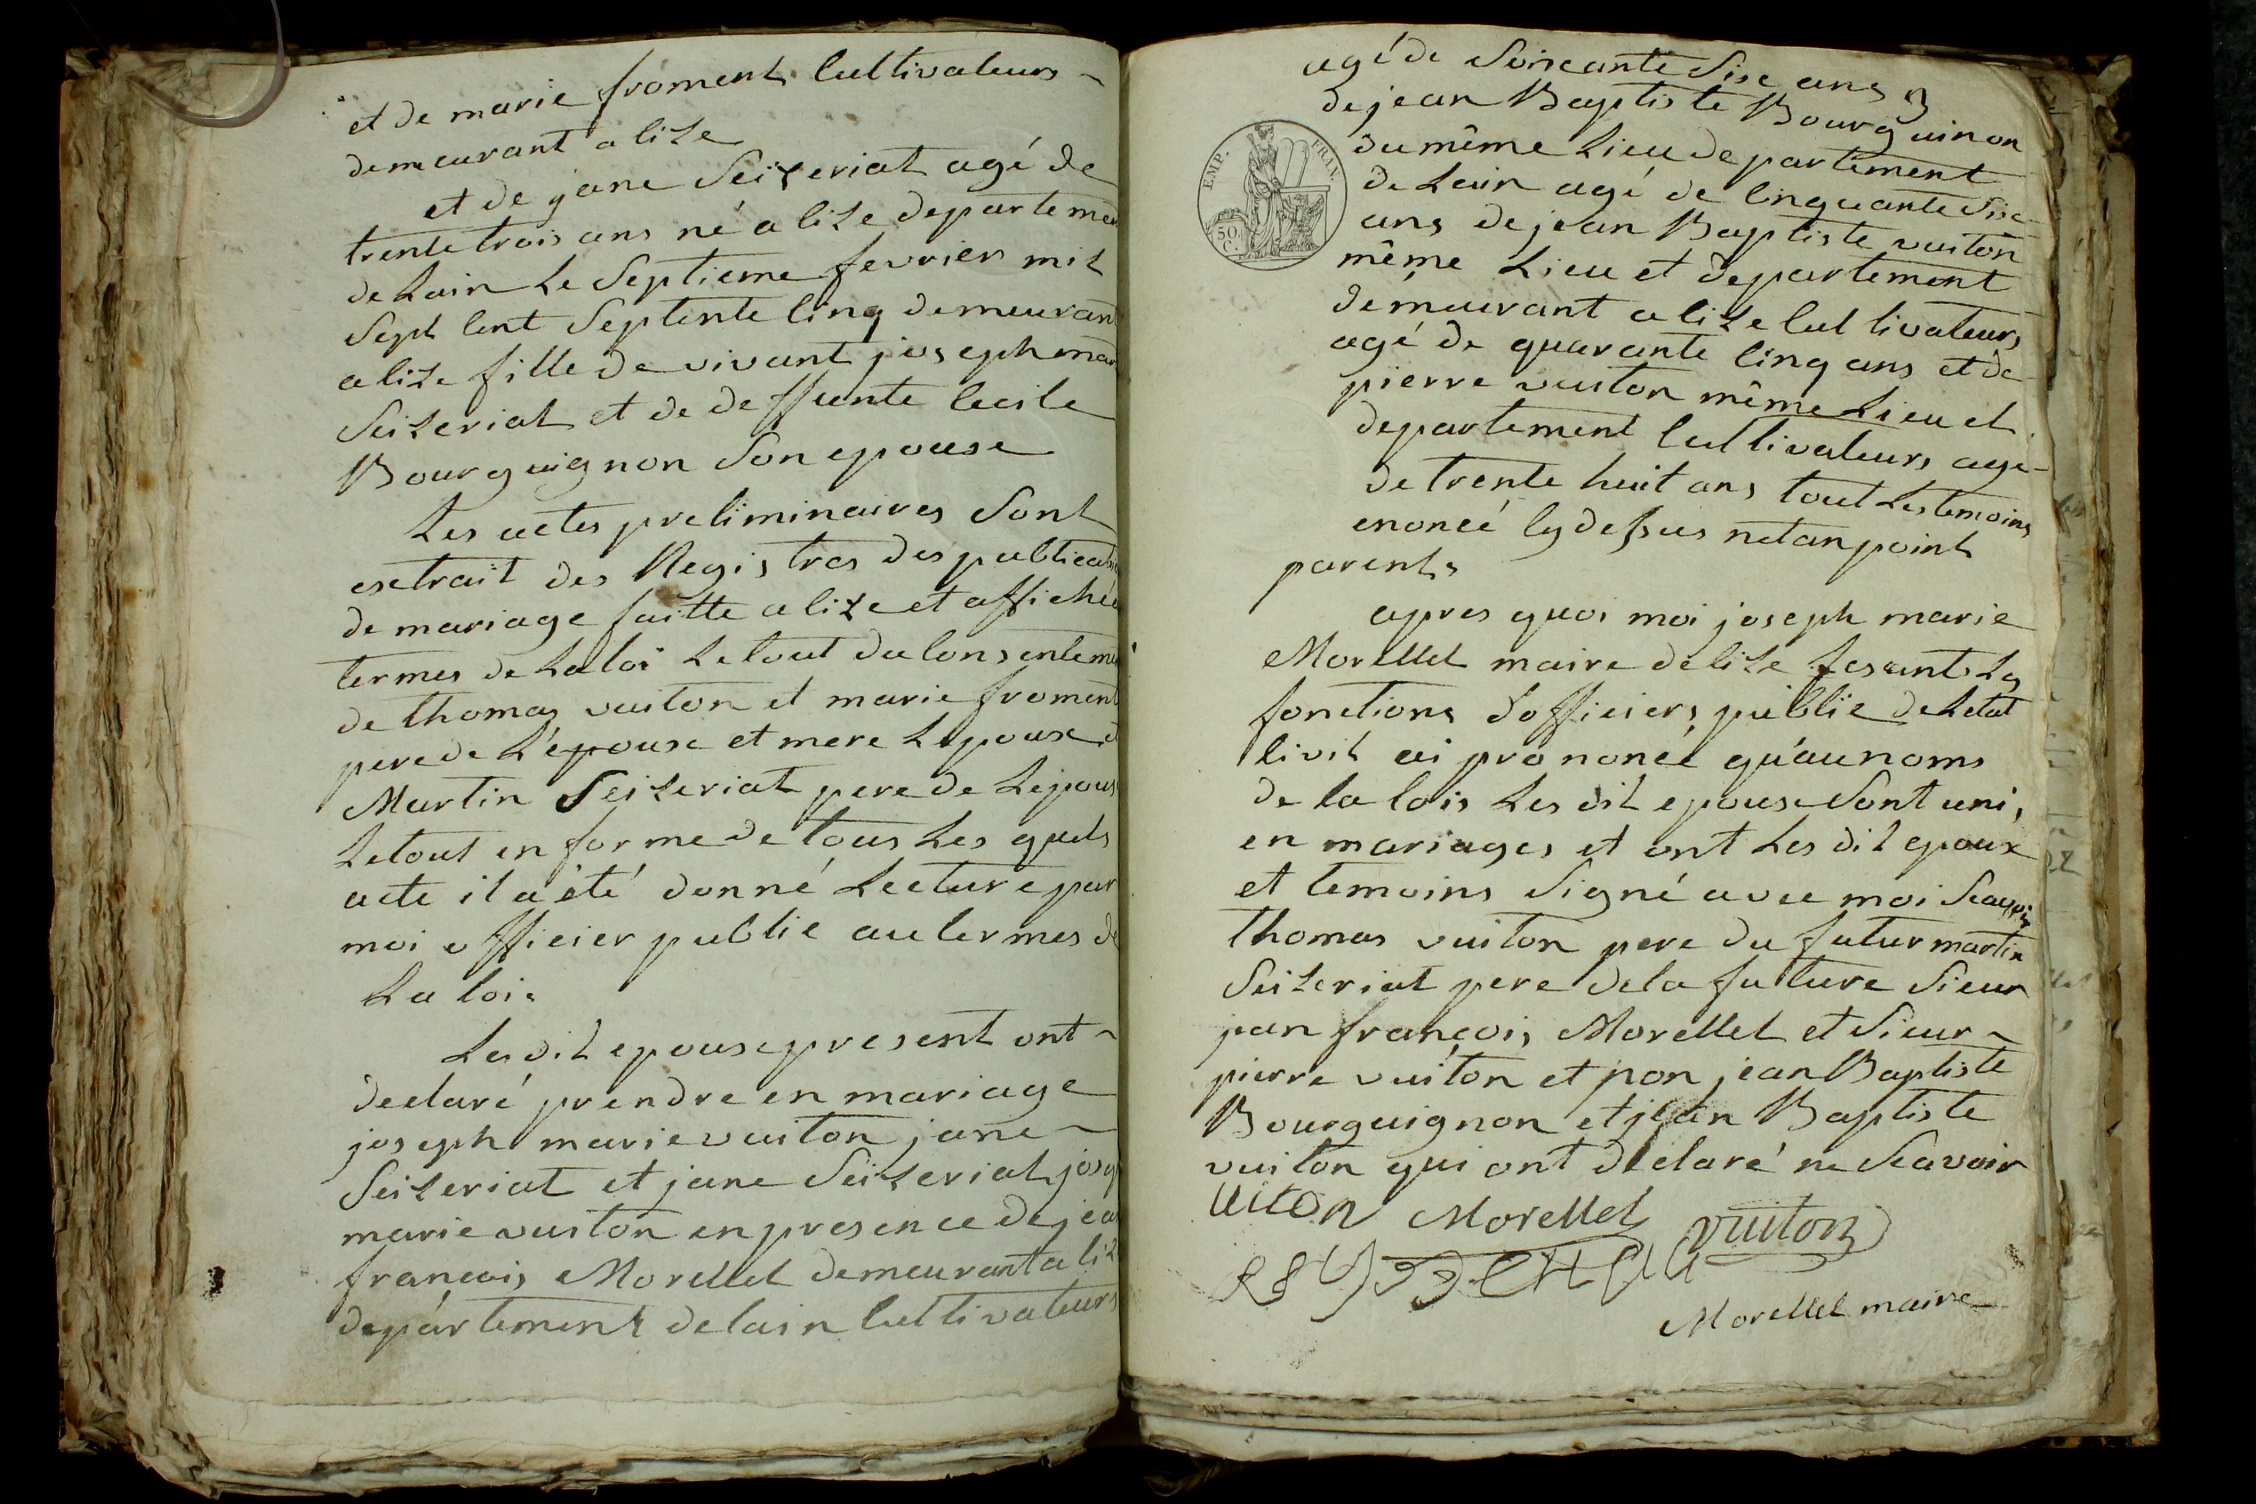 et de marie froment Cultivateurs
demeurant a Cize
et de jane Seizeriat agé de
trente trois ans né a Cize departemen
de Lain Le Septieme fevrier mil
Sept Cent Septente Cinq demeurant
a Cize fille de vivant joseph mar
Seizeriat et de deffunte Cecile
Bourguignon Son epouse
Les actes preliminaires Sont
extrait des Registres des publicati
de mariage faitte a Cize et affichée
termes de La loi Le tout du Consenteme
de thomas vuiton et marie froment
pere de L'epoux et mere Lepoux et
Martin Seizeriat pere de Lepous
Le tout en forme de tous Les quels
acte il a été donné Lecture par
moi officier public au termes de
La loi.
Les dit epoux present ont
declaré prendre en mariage
joseph marie vuiton jane
Seizeriat et jane Seizeriat josep
marie vuiton en presence de jean
francois Morellet demeurant a Ciz
departement de lain Cultivateurs
agé de Soixante Six ans
de jean Baptiste Bourguinon
du même Lieu departement
de Lain agé de Cinquante Six
ans de jean Baptiste vuiton
même Lieu et departement
demeurant a Cize Cultivateurs
agé de quarante Cinq ans et de
pierre vuiton même Lieu et
departement Cultivateurs agé
de trente huit ans tout Les temoins
enoncé Cy dessus netan point
parents
EMP. FRAN.
50 C.
apres quoi moi joseph marie
Morellet maire de Cize fesant Les
fonctions d'officiers public de Letat
Civil ai prononcé qu'au noms
de la lois Les dit epoux Sont uni,
en mariages et ont Les dit epoux
et temoins Signé avec moi Scavoir
thomas vuiton pere du futur martin
Seizeriat pere de la future Sieur
jan françois Morellet et Sieur
pierre vuiton et non jean Baptiste
Bourguignon et jean Baptiste
vuiton qui ont declaré ne Scavoir
uiton Morellet vuiton
Morellet maire